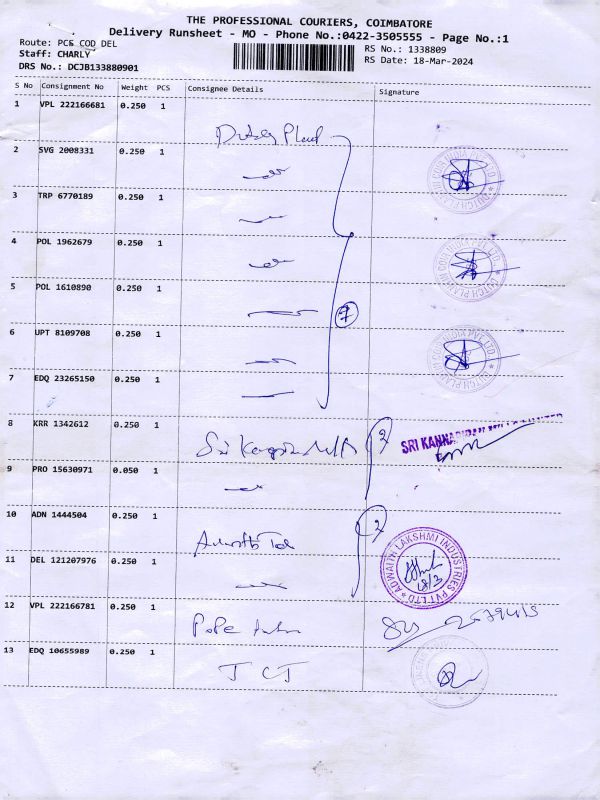 THE PROFESSIONAL COURIERS, COIMBATORE
Delivery Runsheet - MO - Phone No.:0422-3505555 - Page No.:1
Route: PCE COD DEL
Staff: CHARLY
DRS No.: DCJB133880901
RS No.: 1338809
RS Date: 18-Mar-2024
S No Consignment No Weight PCS Consignee Details Signature
1 VPL 222166681 0.250 1
2 SVG 2008331 0.250 1
3 TRP 6770189 0.250 1
4 POL 1962679 0.250 1
5 POL 1610890 0.250 1
7
6 UPT 8109708 0.250 1
7 EDQ 23265150 0.250 1
8 KRR 1342612 0.250 1
Sri 2
SRI
9 PRO 15630971 0.050 1
10 ADN 1444504 0.250 1
2
11 DEL 121207976 0.250 1
ADWAITH LAKSHMI INDUSTRIES PVT LTD
18/3
12 VPL 222166781 0.250 1
Pope
13 EDQ 10655989 0.250 1